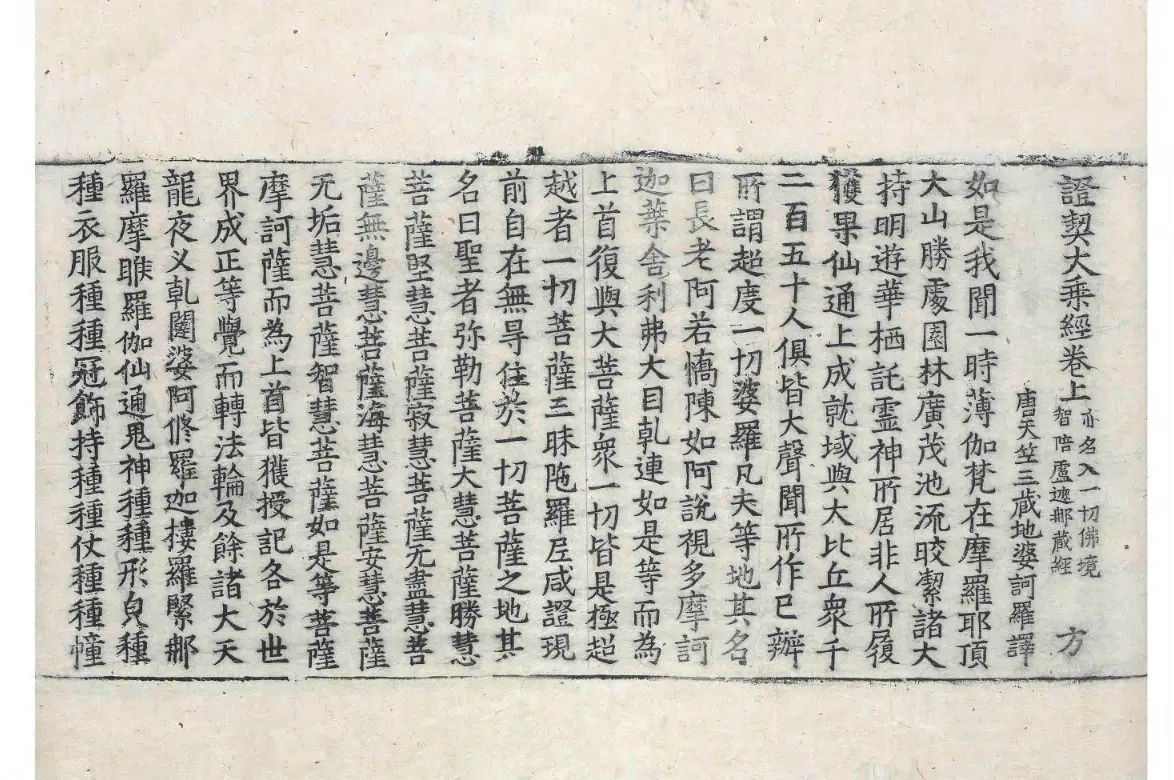 證契大乘經卷上 亦名入一切佛境
智陪盧遮那蔵經 方
唐天竺三蔵地婆訶羅譯
如是我聞一時薄伽梵在摩羅耶頂
大山勝處園林廣茂池流皎潔諸大
持明遊華栖託霊神所居非人所履
獲果仙通上成就域與大比丘衆千
二百五十人俱皆大聲聞所作已辦
所謂超度一切婆羅凡夫等地其名
曰長老阿若憍陳如阿說視多摩訶
迦葉舎利弗大目乹連如是等而為
上首復與大菩薩衆一切皆是極超
越者一切菩薩三昧陁羅尼咸證現
前自在無㝵住於一切菩薩之地其
名曰聖者弥勒菩薩大慧菩薩勝慧
菩薩堅慧菩薩寂慧菩薩无盡慧菩
薩無邊慧菩薩海慧菩薩安慧菩薩
无垢慧菩薩智慧菩薩如是等菩薩
摩訶薩而為上首皆獲授記各於世
界成正等覺而轉法輪及餘諸大天
龍夜义乹闥婆阿修羅迦樓羅緊那
羅摩睺羅伽仙通鬼神種種形皃種
種衣服種種冠飾持種種仗種種幢